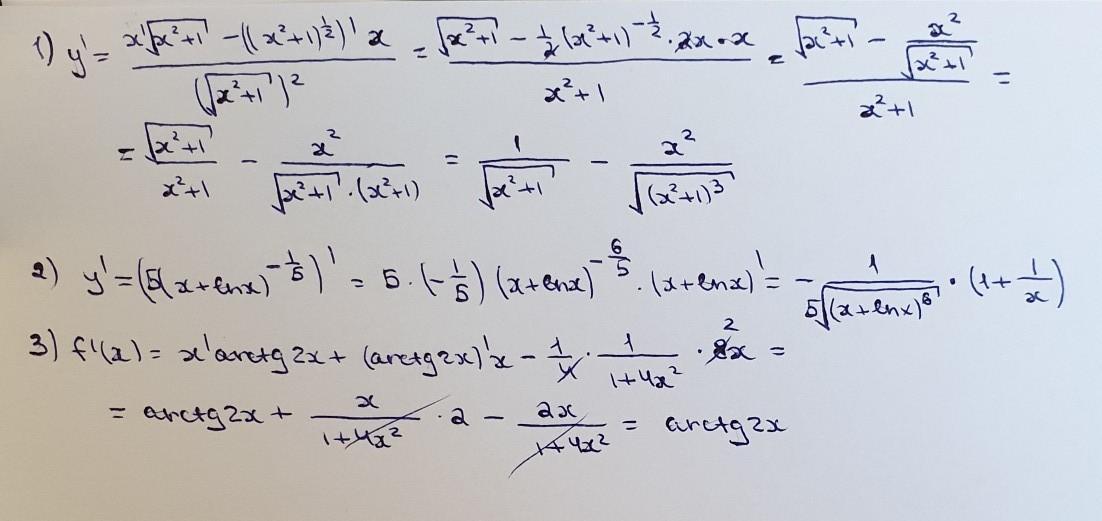 1) y' = (x'√(x²+1) - ((x²+1)^(1/2))' x) / (√(x²+1))² = (√(x²+1) - 1/2 (x²+1)^(-1/2) · 2x · x) / (x²+1) = (√(x²+1) - x²/√(x²+1)) / (x²+1) =
= √(x²+1) / (x²+1) - x² / (√(x²+1) · (x²+1)) = 1/√(x²+1) - x²/√((x²+1)³)
2) y' = (5(x+lnx)^(-1/5))' = 5 · (-1/5) (x+lnx)^(-6/5) · (x+lnx)' = - 1/⁵√((x+lnx)⁶) · (1+1/x)
3) f'(x) = x' arctg2x + (arctg2x)'x - 1/4 · 1/(1+4x²) · 8x 2 =
= arctg2x + x/(1+4x²) · 2 - 2x/(1+4x²) = arctg2x